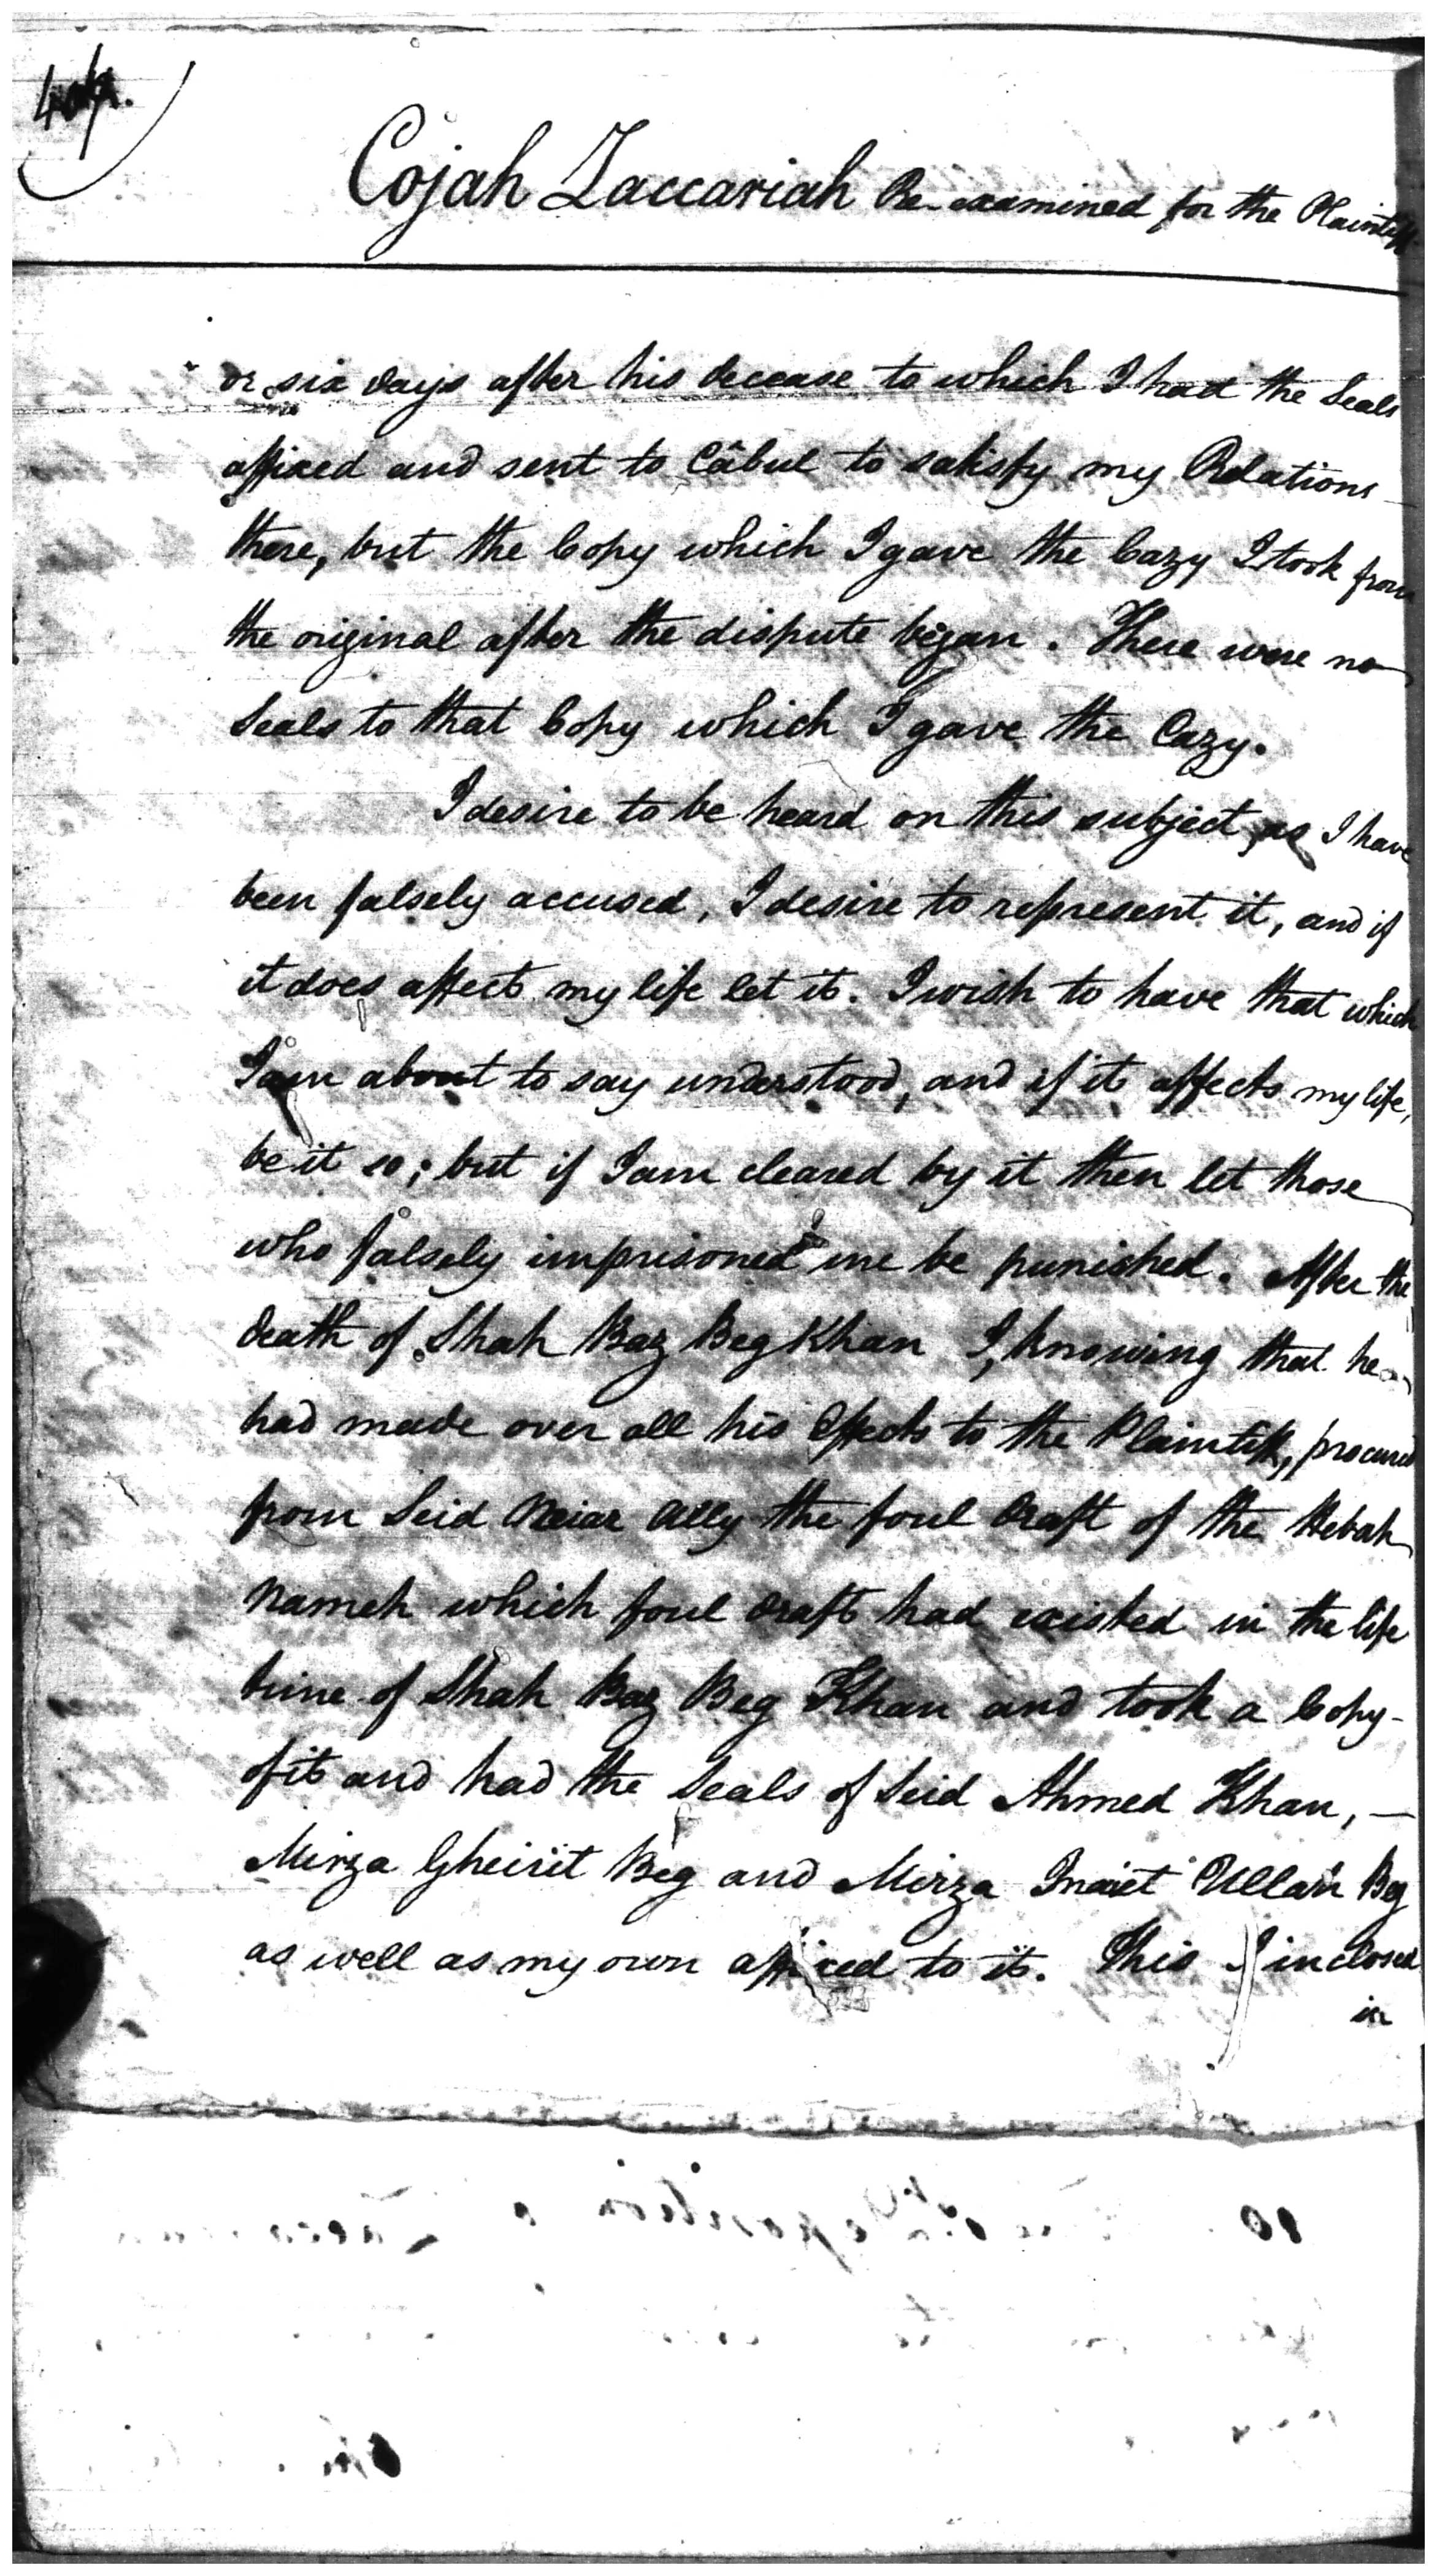 Cojah Zaccariah Re-examined for the Plaintiff
or six days after his decease to which I had the Seals
affixed and sent to Câbul to satisfy my Relations
there, but the Copy which I gave the Cazy I took from
the original after the dispute began. There were no
Seals to that Copy which I gave the Cazy.
I desire to be heard on this subject, as I have
been falsely accused, I desire to represent it, and if
it does affect my life let it. I wish to have that which
I am about to say understood, and if it affects my life,
be it so; but if I am cleared by it then let those
who falsely imprisoned me be punished. After the
death of Shah Baz Beg Khan I, knowing that he
had made over all his Effects to the Plaintiff, procured
from Seid Neiar Ally the foul Draft of the Hebah
Nameh which foul draft had existed in the life
time of Shah Baz Beg Khan and took a Copy
of it and had the Seals of Seid Ahmed Khan,
Mirza Gheirit Beg and Mirza Inaiet Ullah Beg
as well as my own affixed to it. This I inclosed
in